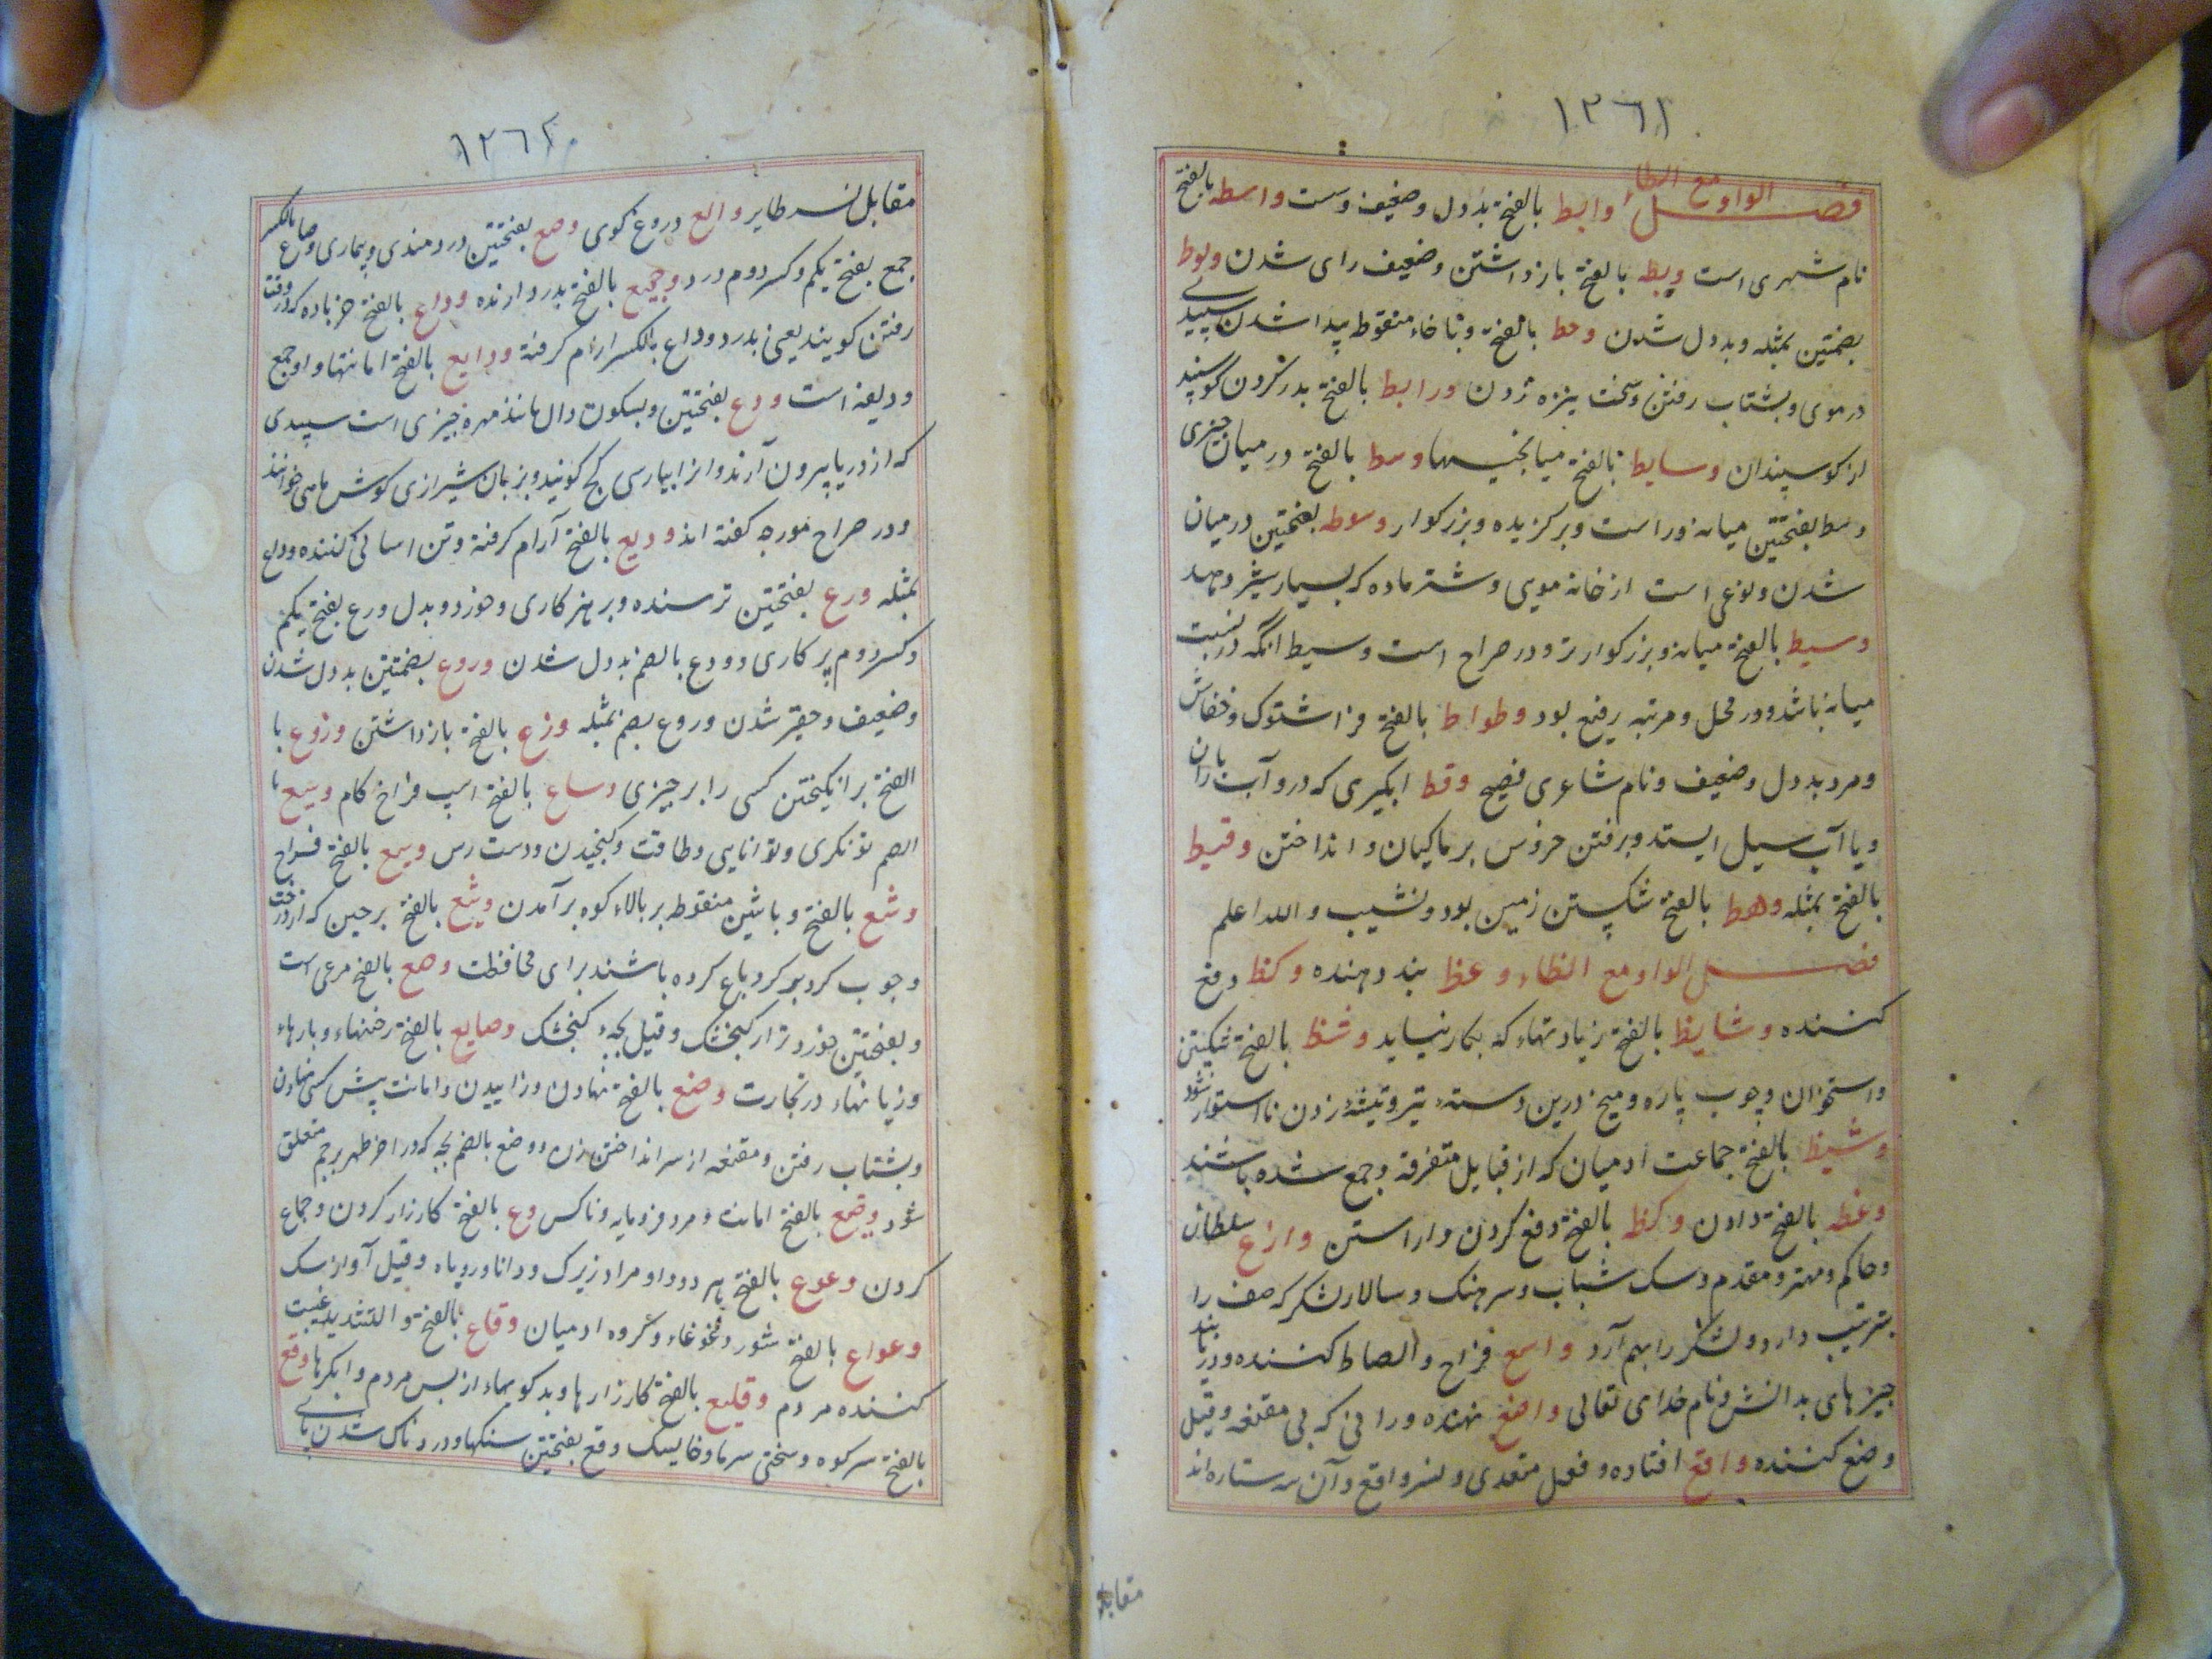 ١٢٦١
فصل الواو مع الطاء وابط بالفتح بددل وضعیف وست واسطه بالفتح
نام شهری است وبط بالفتح بازداشتن وضعیف رای شدن وبوط
بضمتین بمثله وبددل شدن وخط بالفتح وبا خاء منقوط پیدا شدن سپیدی
در موی وبشتاب رفتن وسخت نیزه زدن ورابط بالفتح بدر کردن گوسپند
از کوسپندان وسایط بالفتح میانجیها وسط بالفتح در میان چیزی
وسط بفتحتین میانه وراست وبرکزیده وبزرکوار وسوطه بفتحتین درمیان
شدن ونوعی است از خانه مویی وشتر ماده که بسیار شیر دهد
وسیط بالفتح میانه وبزرکوارتر ودر صراح است وسیط انکه در نسبت
میانه باشد ودر محل ومرتبه رفیع بود وطواط بالفتح فراشتوک وخفاش
ومرد بددل وضعیف ونام شاعری فصیح وقط ابکیری که درو آب باران
ویا آب سیل ایستد وبرفتن خروس بر ماکیان وانداختن وقیط
بالفتح بمثله وهط بالفتح شکستن زمین بود ونشیب والله اعلم
فصل الواو مع الظاء وعظ پند دهنده وکظ دفع
کننده وشایظ بالفتح زیادتهاء که بکار نیاید وشظ بالفتح شکستن
واستخوان وچوب پاره ومیخ درین دسته تبر وتیشه زدن تا استوار شود
وشیظ بالفتح جماعت ادمیان که از قبایل متفرقه وجمع شده باشند
وعظه بالفتح دادن وکظ بالفتح دفع کردن واراستن وازع سلطان
وحاکم ومهتر ومقدم وسک شباب وسرهنک وسالار لشکر که صف را
بترتیب دارد ولشکر را بهم آرد واسع فراخ والصاط کننده ودریابند
چیزهای بدانش ونام خدای تعالی واضع نهنده وزانی که بی مقنعه وقیل
وضع کننده واقع افتاده وفعل متعدی ونسر واقع وآن سه ستاره اند
مقابل
١٢٦٢
مقابل نسر طایر والع دروغ کوی وصع بفتحتین دردمندی وبیماری وصاع بالکسر
جمع بفتح یکم وکسر دوم درد وجیع بالفتح بدرد ارنده وداع بالفتح خرباده که در وقت
رفتن کویند یعنی بدرد وداع بالکسر ارام کرفته ودایع بالفتح امانتها واو جمع
ودیعه است ودع بفتحتین وبسکون دال مانند مهره چیزی است سپیدی
که از دریا بیرون آرند وانرا بپارسی کج کویند وبزبان شیرازی کوش ماهی خوانند
ودر صراح مورچه کفته اند ودیع بالفتح آرام کرفته وتن اسانی کننده ووداع
بمثله ورع بفتحتین ترسنده وپرهیزکاری وخورد وبددل ورع بفتح یکم
وکسر دوم پرکاری وودع بالضم بددل شدن وروع بضمتین بددل شدن
وضعیف وحقیر شدن وروع بضم بمثله وزع بالفتح بازداشتن وزوع با
الفتح برانکیختن کسی را بر چیزی وساع بالفتح اسپ فراخ کام وسع با
الضم توانکری وتوانایی وطاقت وکنجیدن ودست رس وسیع بالفتح فراخ
وشع بالفتح وبا شین منقوط بر بالاء کوه برآمدن وشیع بالفتح برچین که از درخت
وچوب کردبر کرد باغ کرده باشند برای محافظت وصع بالفتح مرغی است
وبفتحتین خوردتر از کنجشک وقیل بچهٔ کنجشک وضایع بالفتح رختهاء وبارهاء
وزیانهاء در تجارت وضع بالفتح نهادن وزاییدن وامانت پیش کسی نهادن
وبشتاب رفتن ومقنعه از سر انداختن زن ووضع بالضم بچه که در اخر طهر برحم متعلق
شود وضیع بالفتح امانت ومرد فرومایه وناکس وع بالفتح کارزار کردن وجماع
کردن وعوع بالفتح بهر دو واو مراد زیرک ودانا وروباه وقیل آواز سک
وعواع بالفتح شور وغوغاء وکروه ادمیان وقاع بالفتح والتشدید غیبت
کننده مردم وقلیع بالفتح کارزارها وبدکویهاء از پس مردم وابکرها وقع
بالفتح سر کوه وسختی سرما وخایسک وقع بفتحتین سنکها ودردناک شدن پای